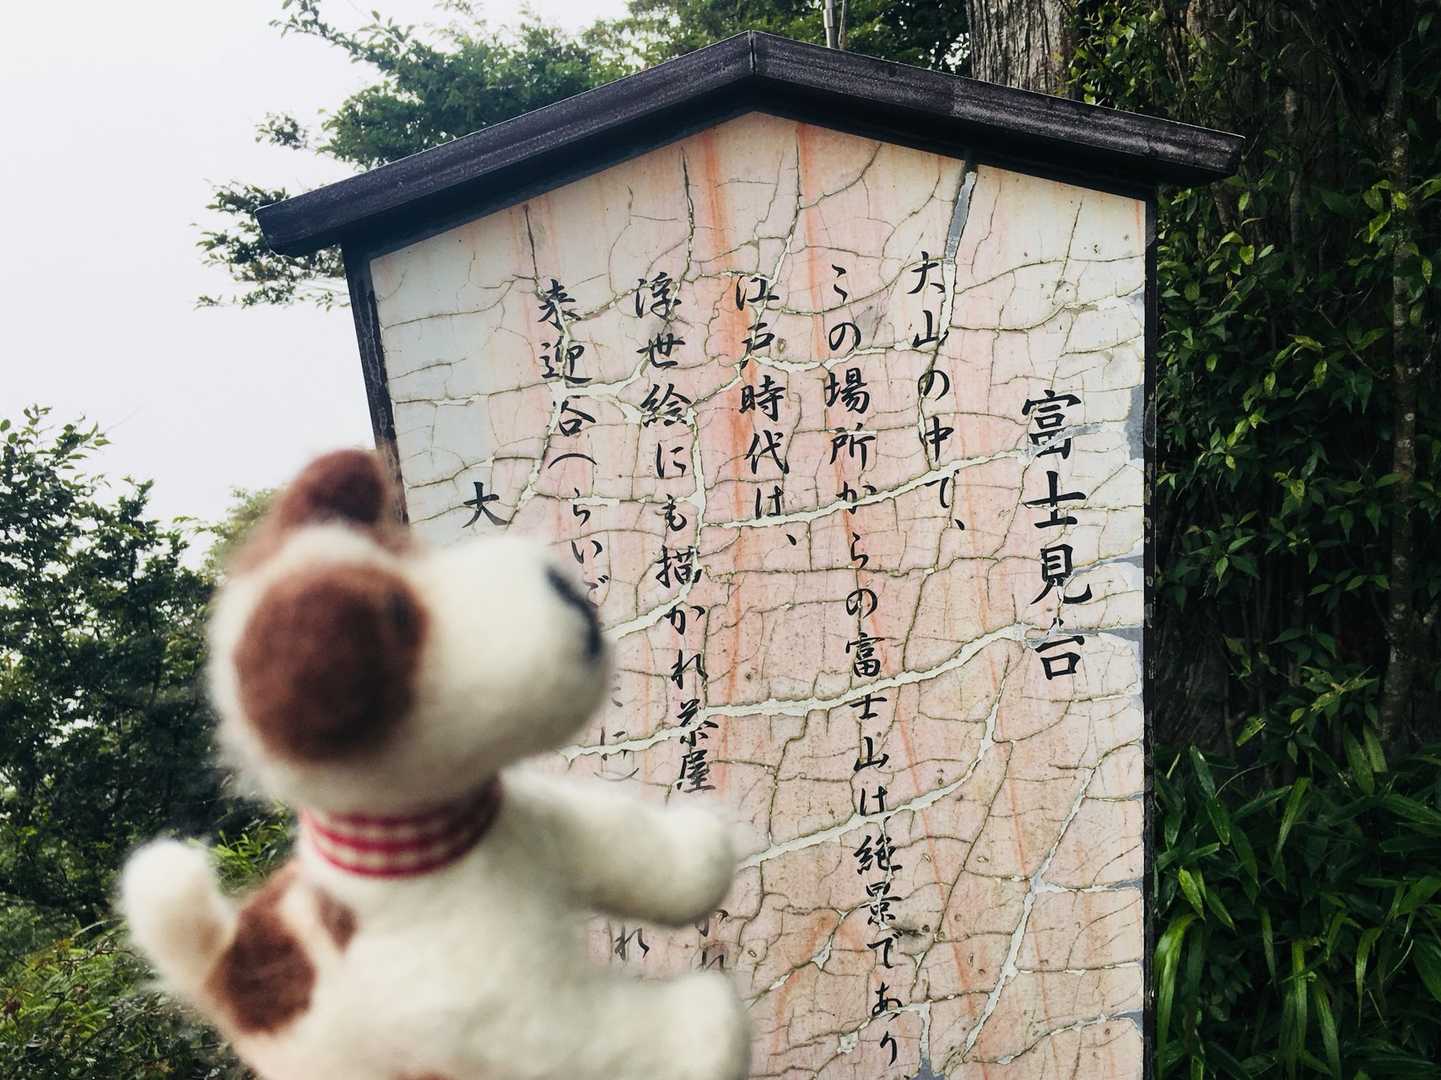 富士見台
大山の中で、
この場所からの富士山は絶景であり、
江戸時代は、
浮世絵にも描かれ茶屋
来迎谷(らいご
に)
れ
大